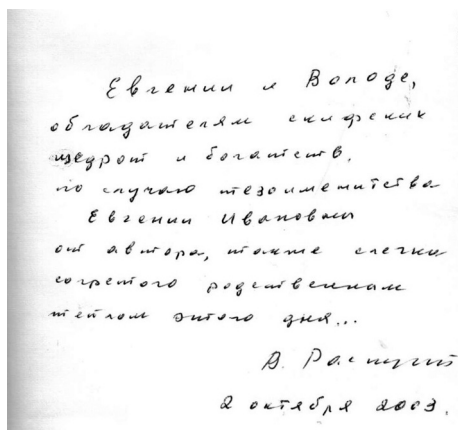 Евгении и Володе,
обладателям скифских
щедрот и богатств,
по случаю тезоименитства
Евгении Ивановны
от автора, также слегка
согретого родственным
теплом этого дня...
В. Распутин
2 октября 2003.